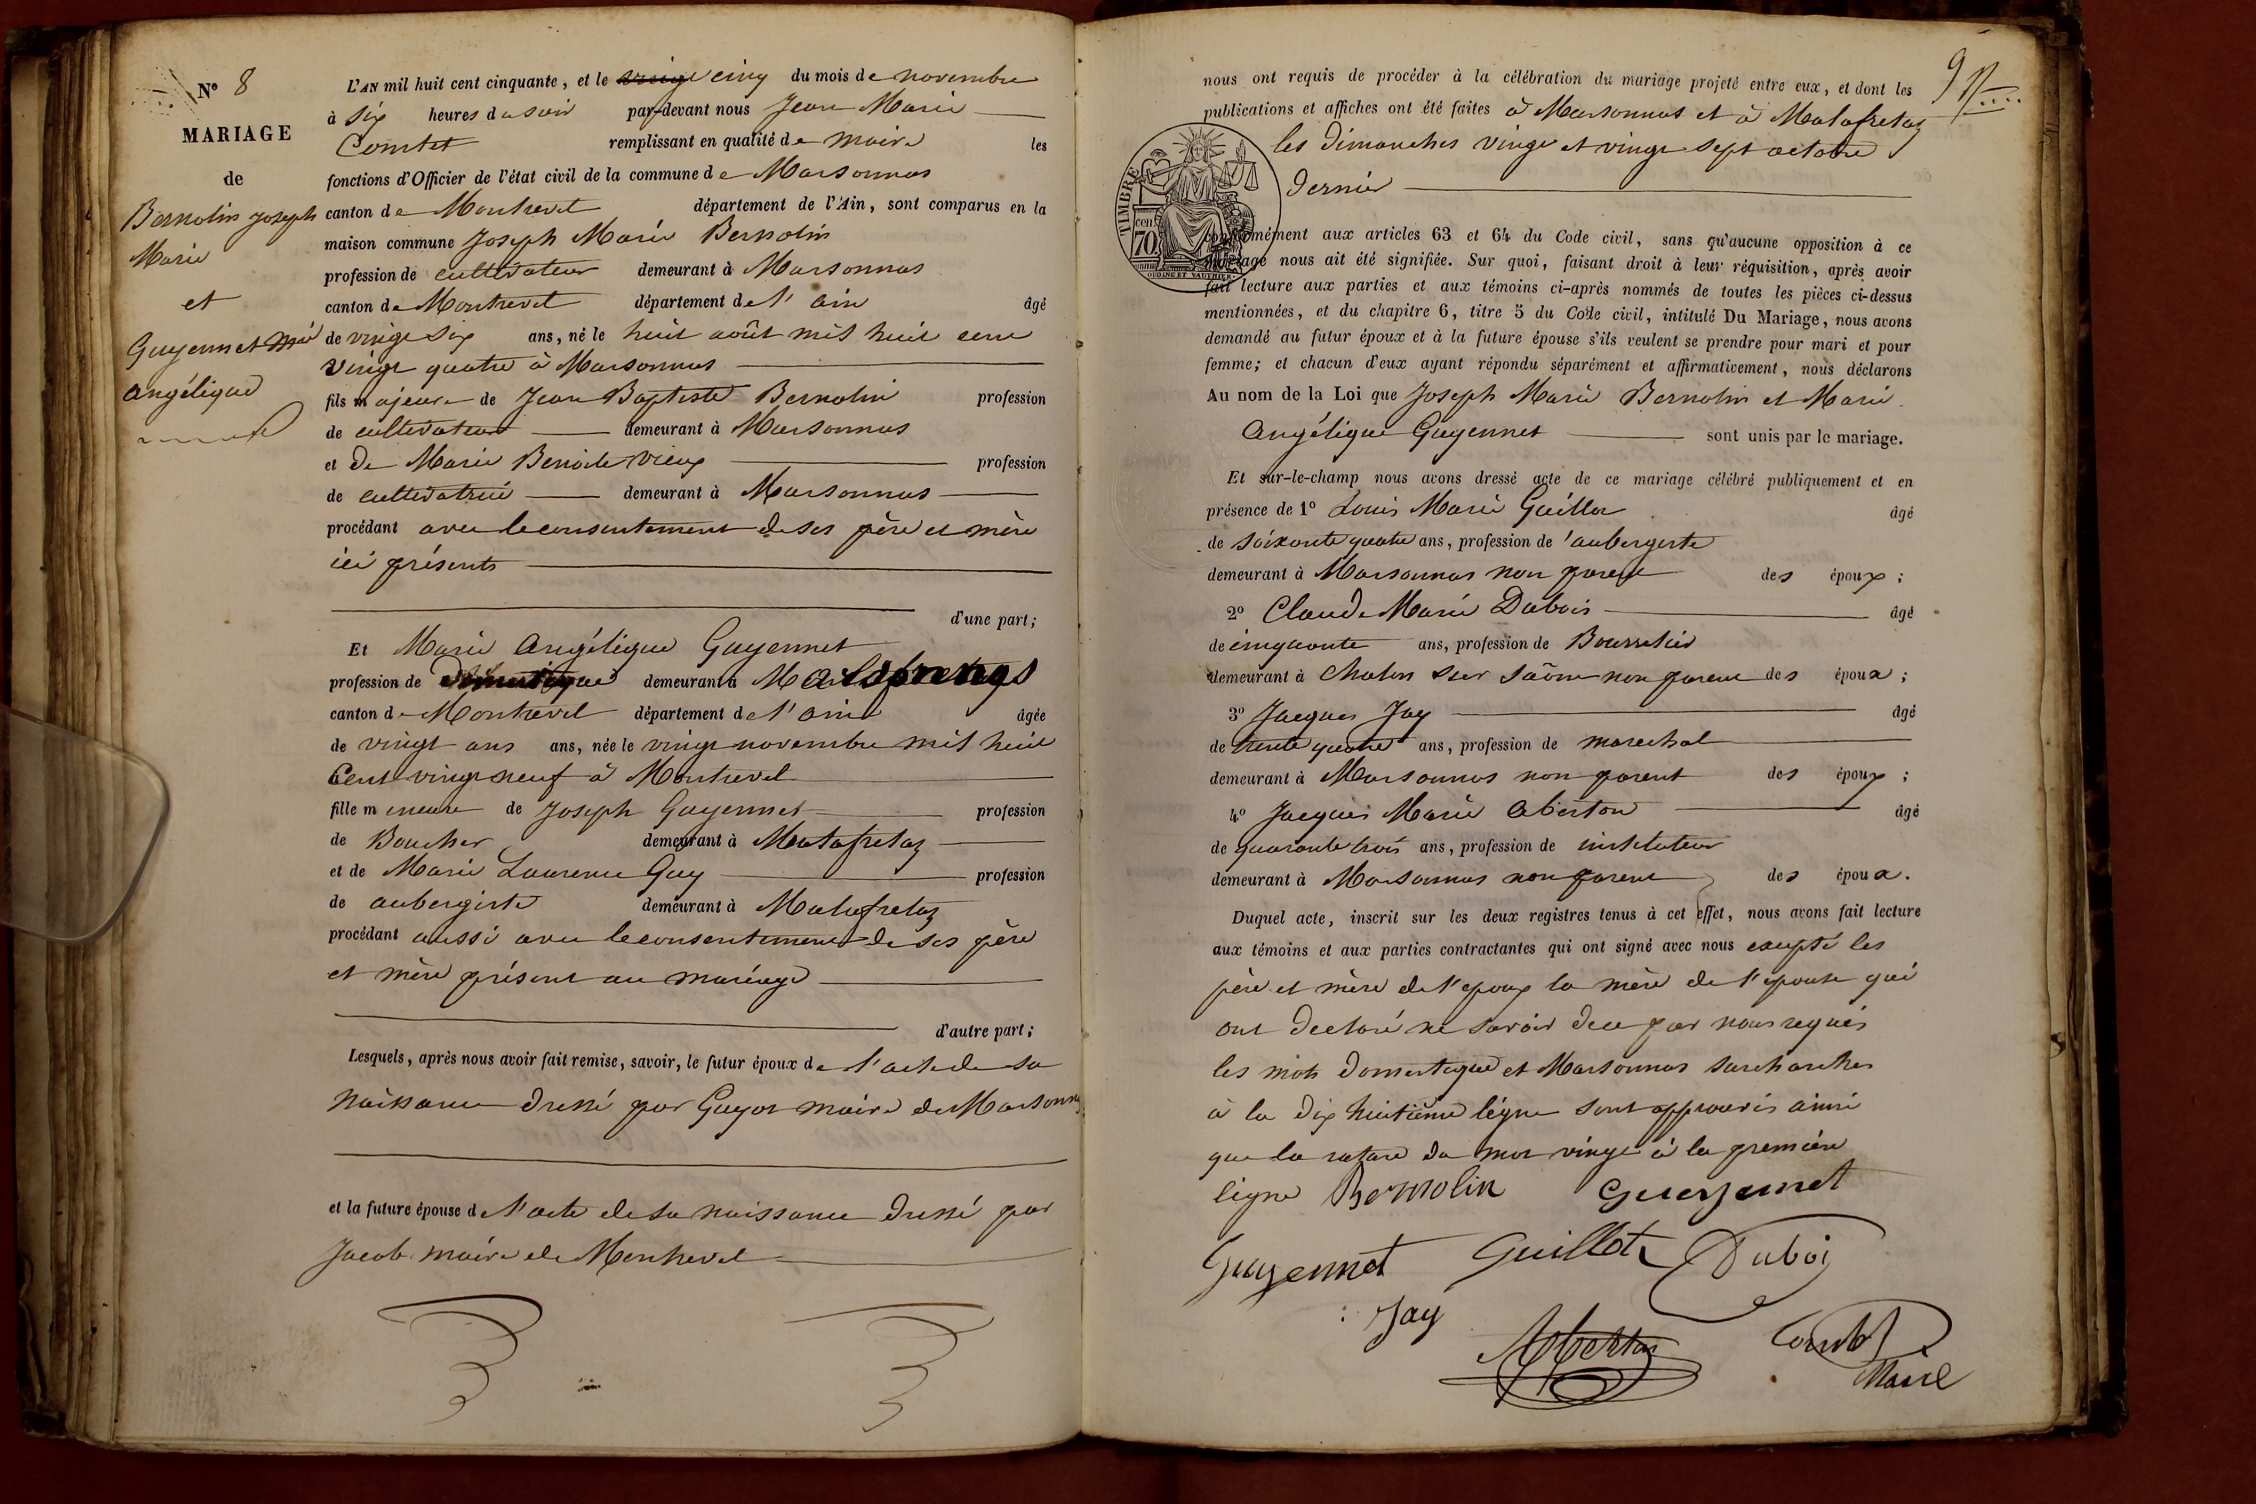 N° 8
MARIAGE
de
Bernolin Joseph
Marie
et
Guyennet Marie
angélique
L'AN mil huit cent cinquante, et le vingt cinq du mois de novembre
à six heures du soir par-devant nous Jean Marie
Comtet remplissant en qualité de maire les
fonctions d'Officier de l'état civil de la commune de Marsonnas
canton de Montrevel département de l'Ain, sont comparus en la
maison commune Joseph Marie Bernolin
profession de cultivateur demeurant à Marsonnas
canton de Montrevel département de l'ain âgé
de vingt six ans, né le huit août mil huit cent
vingt quatre à Marsonnas
fils majeur de Jean Baptiste Bernolin profession
de cultivateur demeurant à Marsonnas
et de Marie Benoite Vieux profession
de cultivatrice demeurant à Marsonnas
procédant avec le consentement de ses père et mère
ici présents
d'une part;
Et Marie Angélique Guyennet
profession de domestique demeurant à
canton de Montrevel département de l'ain âgée
de vingt ans ans, née le vingt novembre mil huit
Cent vingt neuf à Montrevel
fille mineure de Joseph Guyennet profession
de Boucher demeurant à Malafretaz
et de Marie Laurence Guy profession
de aubergiste demeurant à Malafretaz
procédant aussi avec le consentement de ses père
et mère présent au mariage
d'autre part;
Lesquels, après nous avoir fait remise, savoir, le futur époux de l'acte de sa
naissance dressé par Guyot maire de Marsonnas
et la future épouse de l'acte de sa naissance dressé par
Jacob maire de Montrevel
9
nous ont requis de procéder à la célébration du mariage projeté entre eux, et dont les
publications et affiches ont été faites à Marsonnas et à Malafretaz
les Dimanches vingt et vingt sept octobre
dernier
TIMBRE
70 cen
conformément aux articles 63 et 64 du Code civil, sans qu'aucune opposition à ce
mariage nous ait été signifiée. Sur quoi, faisant droit à leur réquisition, après avoir
fait lecture aux parties et aux témoins ci-après nommés de toutes les pièces ci-dessus
mentionnées, et du chapitre 6, titre 5 du Code civil, intitulé Du Mariage, nous avons
demandé au futur époux et à la future épouse s'ils veulent se prendre pour mari et pour
femme; et chacun d'eux ayant répondu séparément et affirmativement, nous déclarons
Au nom de la Loi que Joseph Marie Bernolin et Marie
Angélique Guyennet sont unis par le mariage.
Et sur-le-champ nous avons dressé acte de ce mariage célébré publiquement et en
présence de 1° Louis Marie Guillot âgé
de soixante quatre ans, profession de aubergiste
demeurant à Marsonnas non parent des époux;
2° Claude Marie Dubois âgé
de cinquante ans, profession de Bourrelier
demeurant à Chalon sur Saône non parent des époux;
3° Jacques Jay âgé
de trente quatre ans, profession de marechal
demeurant à Marsonnas non parent des époux;
4° Jacques Marie Oberton âgé
de quarante trois ans, profession de instituteur
demeurant à Marsonnas non parent des époux.
Duquel acte, inscrit sur les deux registres tenus à cet effet, nous avons fait lecture
aux témoins et aux parties contractantes qui ont signé avec nous excepté les
père et mère de l'epoux la mère de l'epouse qui
ont declaré ne savoir de ce par nous requis
les mots domestique et Marsonnas surchargés
à la dix huitième ligne sont approuvés ainsi
que la rature du mot vingt à la première
ligne Bernolin Gueyennet
Guyennet Guillot Dubois
Jay
Comtet
Maire